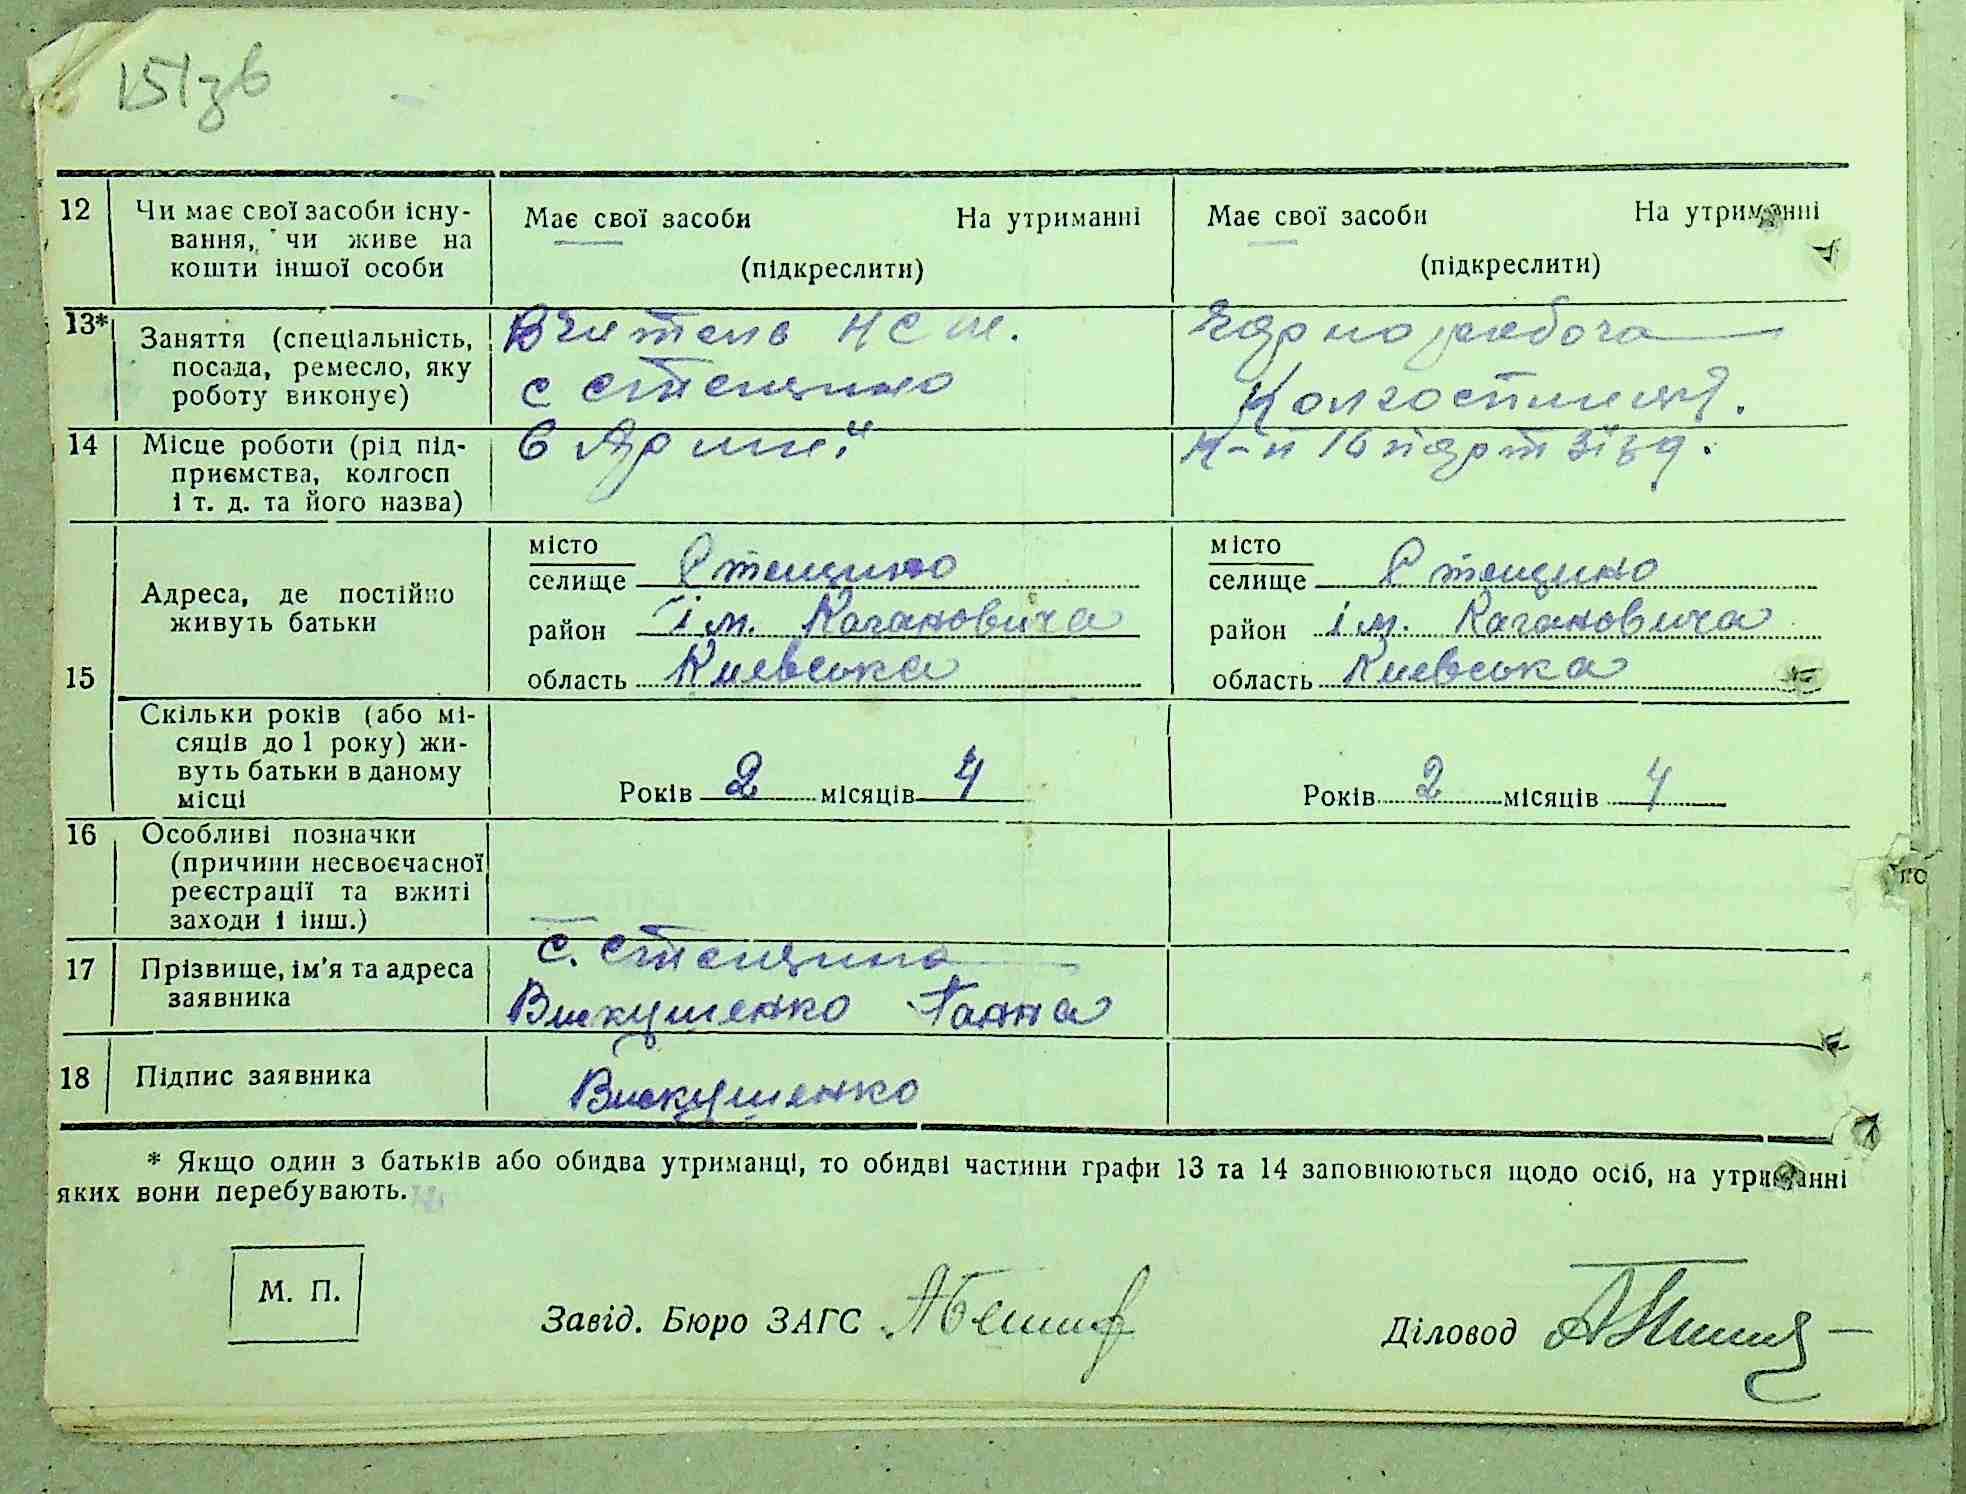 151зв
12 Чи має свої засоби існу- Має свої засоби На утриманні Має свої засоби На утриманні
вання, чи живе на
кошти іншої особи (підкреслити) (підкреслити)
13* Заняття (спеціальність, Вчитель НСШ. робоча
посада, ремесло, яку с Стещино
роботу виконує)
14 Місце роботи (рід під- в Армиї к-п 16 парт зїзд.
приємства, колгосп
і т. д. та його назва)
місто місто
селище Стещино селище Стещино
Адреса, де постійно
живуть батьки район ім. Кагановича район ім. Кагановича
15 область Киевська область Киевська
Скільки років (або мі-
сяців до 1 року) жи-
вуть батьки в даному
місці Років 2 місяців 4 Років 2 місяців 4
16 Особливі позначки
(причини несвоєчасної
реєстрації та вжиті
заходи і інш.)
с. Стещина
17 Прізвище, ім'я та адреса
заявника Вискушенко Ганна
18 Підпис заявника Вискушенко
* Якщо один з батьків або обидва утриманці, то обидві частини графи 13 та 14 заповнюються щодо осіб, на утриманні
яких вони перебувають.
М. П.
Завід. Бюро ЗАГС Діловод